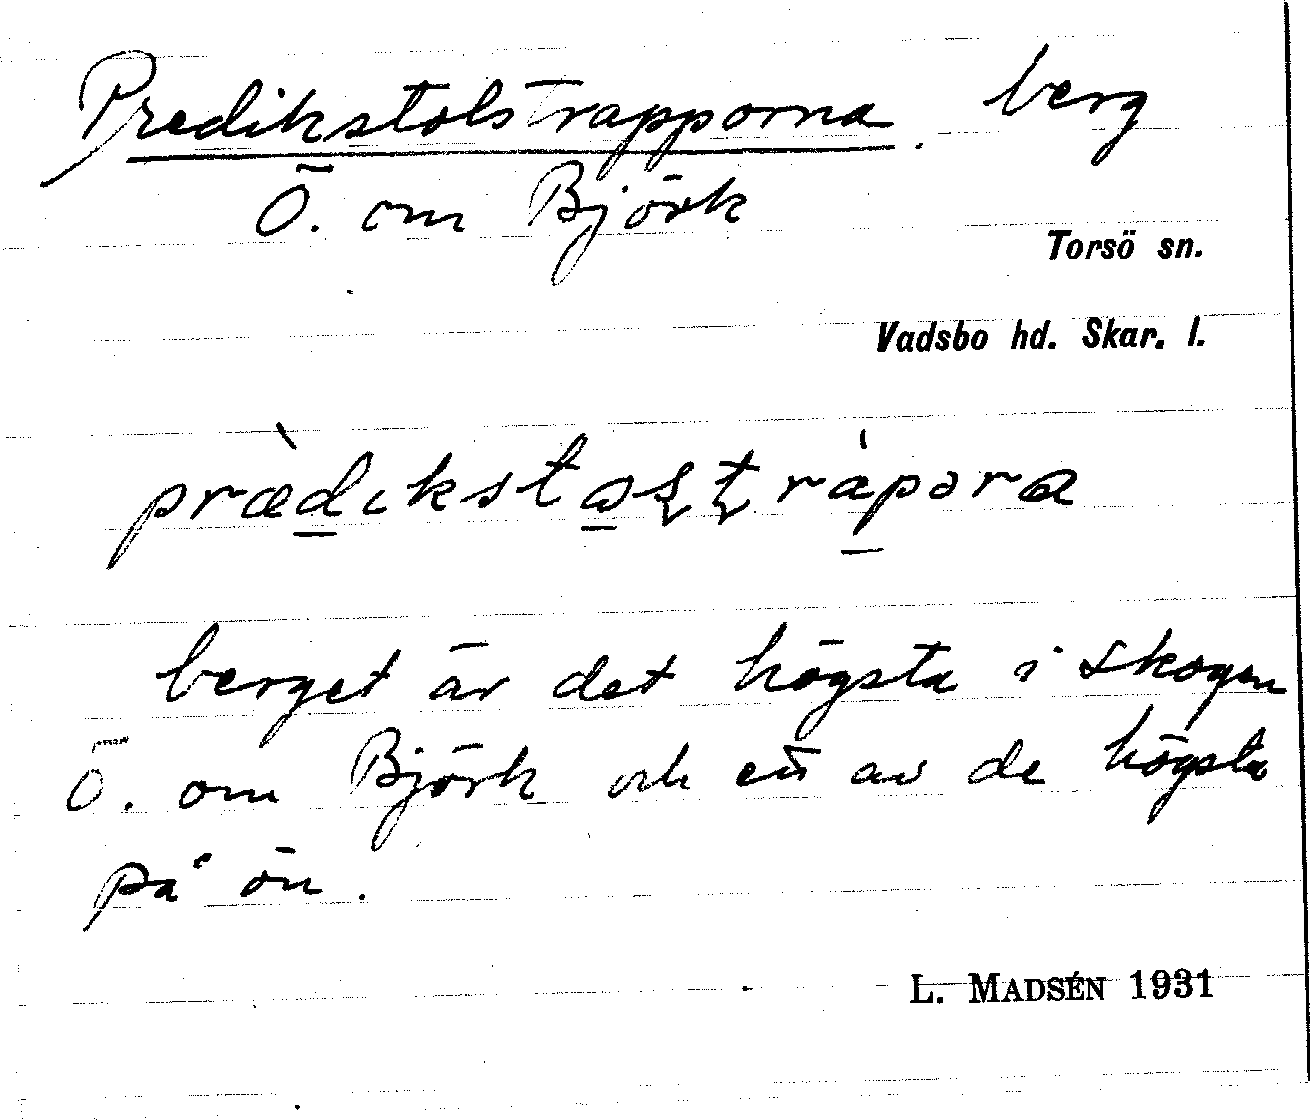 Predikstolstrapporna. berg
Ö. om Björk
Torsö sn.
Vadsbo hd. Skar. l.
berget är det högsta i skogen
Ö. om Björk och ett av de högsta
på ön.
L. MADSÉN 1931